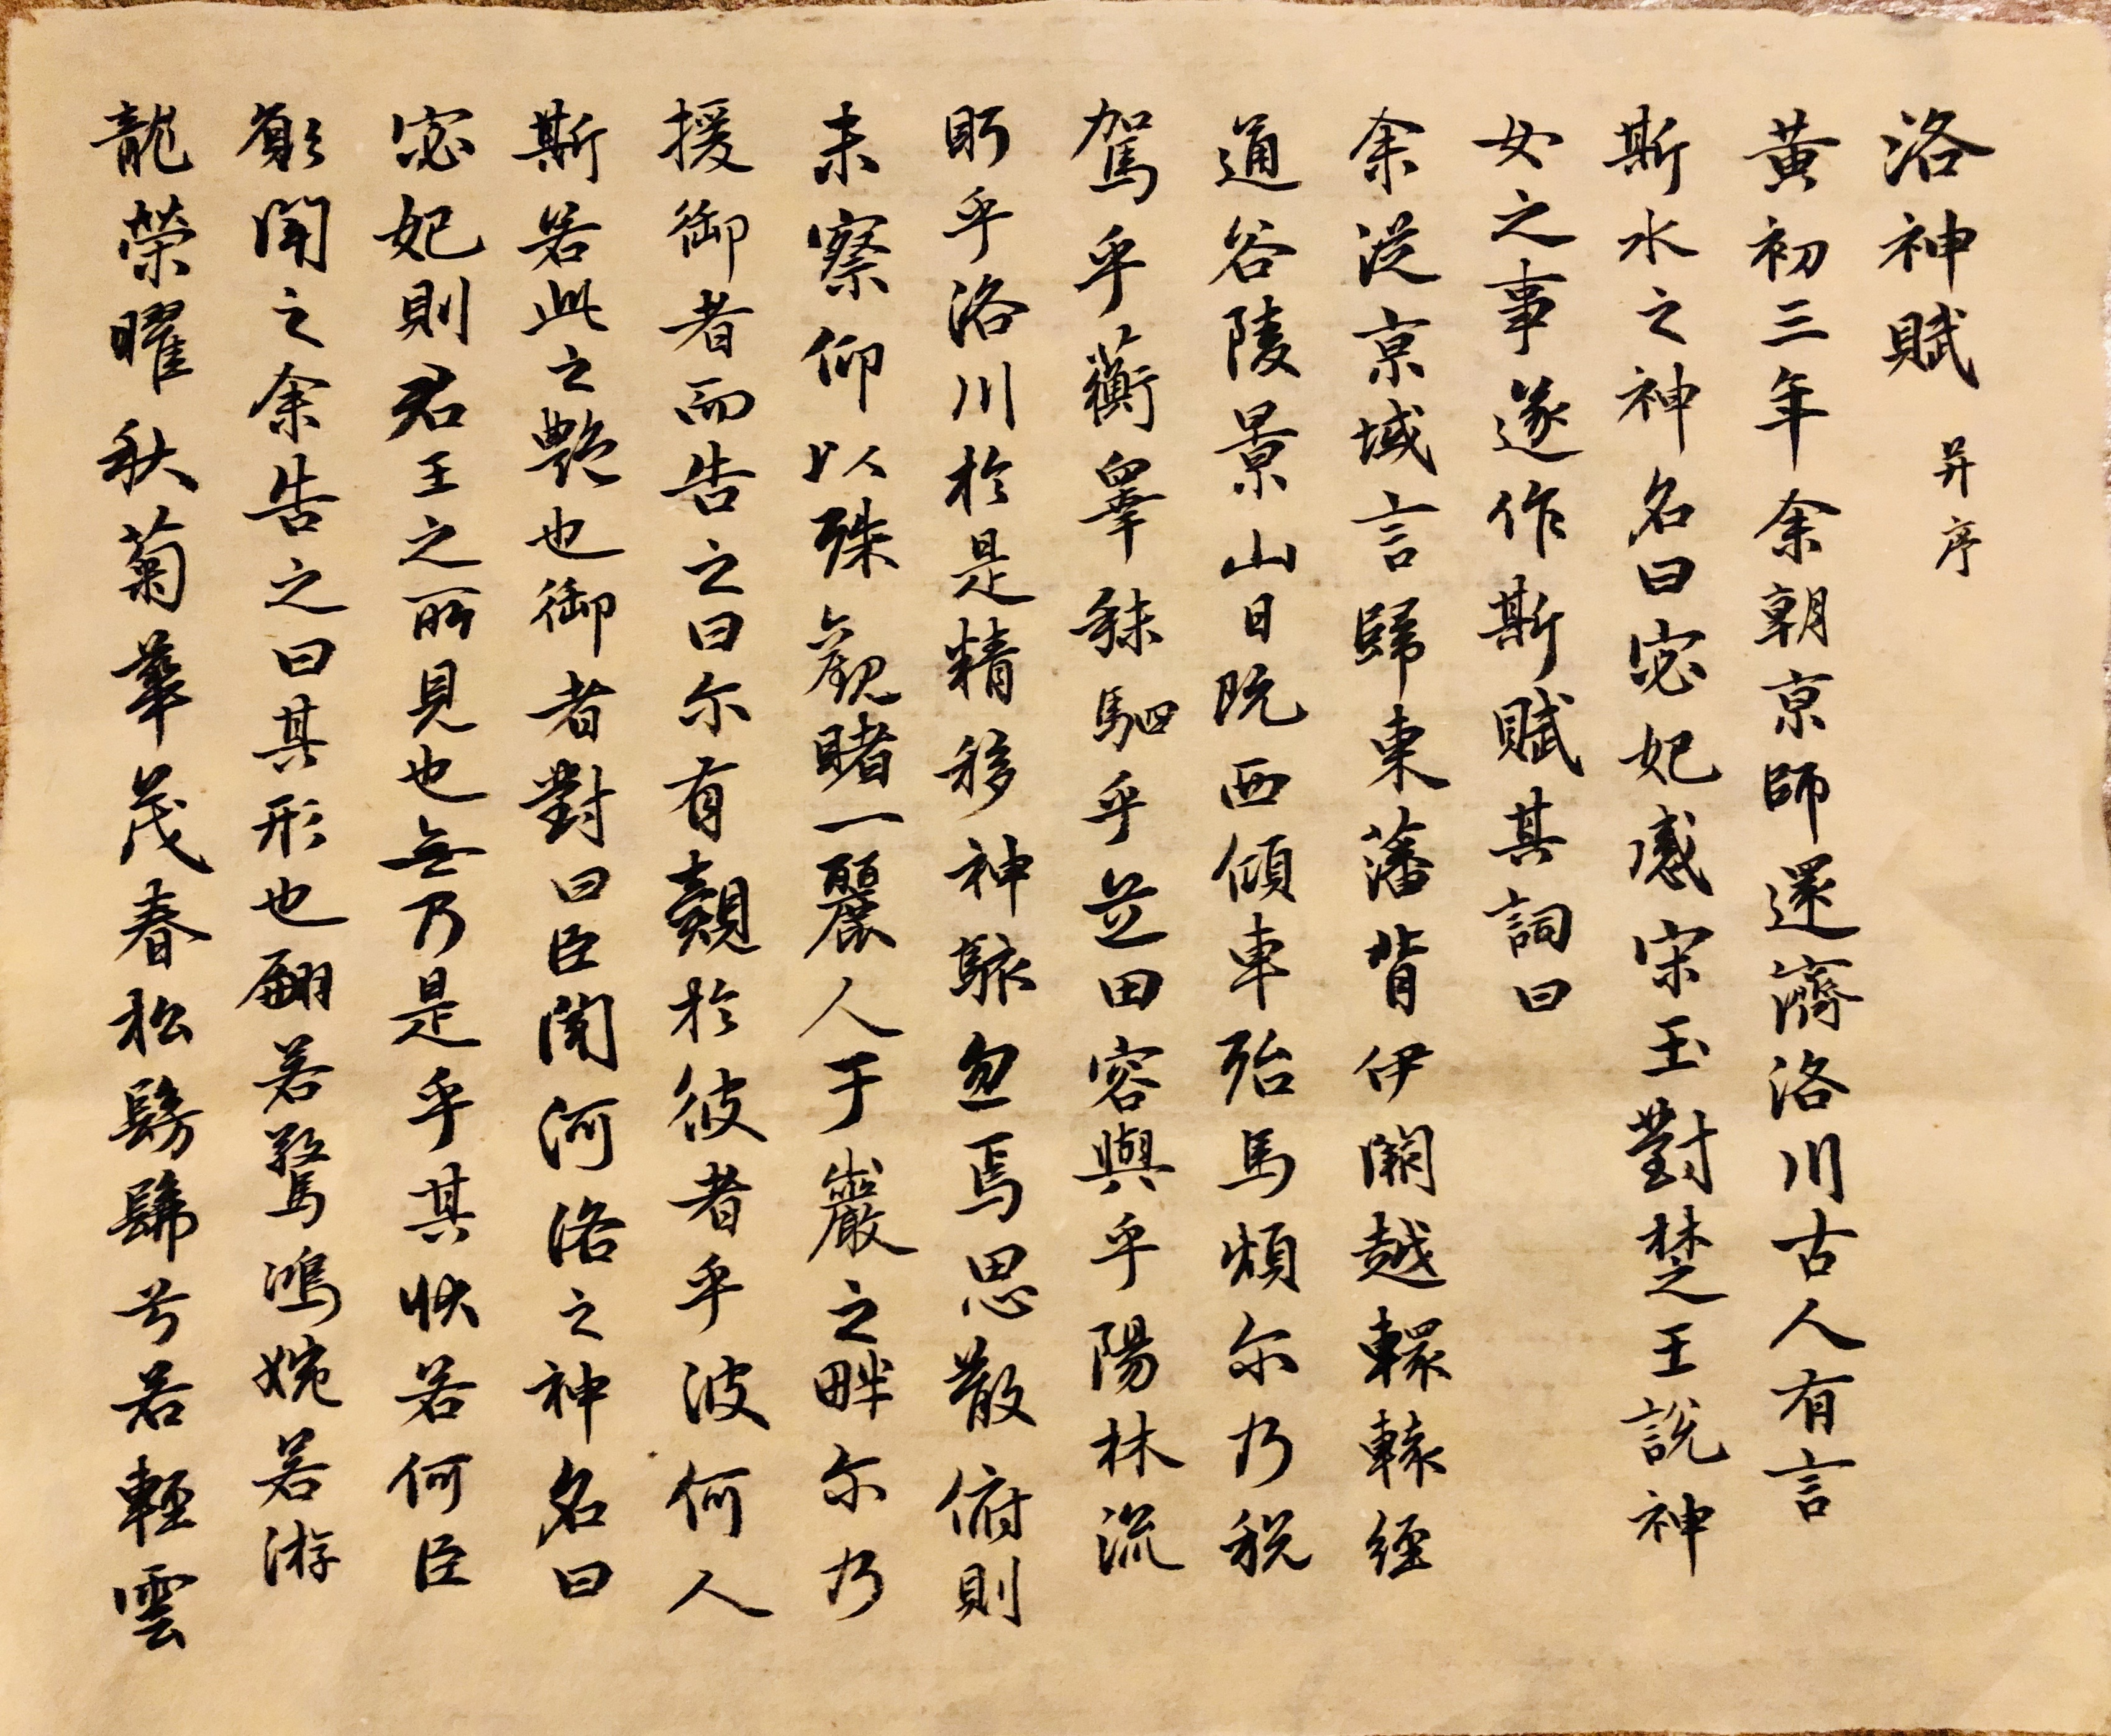 洛神賦 并序
黃初三年余朝京師還濟洛川古人有言
斯水之神名曰宓妃感宋玉對楚王說神
女之事遂作斯賦其詞曰
余從京域言歸東藩背伊闕越轘轅經
通谷陵景山日既西傾車殆馬煩尔乃稅
駕乎蘅皋秣駟乎芝田容與乎陽林流
眄乎洛川於是精移神駭忽焉思散俯則
未察仰以殊觀睹一麗人于巖之畔尔乃
援御者而告之曰尔有覿於彼者乎彼何人
斯若此之艷也御者對曰臣聞河洛之神名曰
宓妃則君王之所見也無乃是乎其狀若何臣
願聞之余告之曰其形也翩若驚鴻婉若游
龍榮曜秋菊華茂春松髣髴兮若輕雲